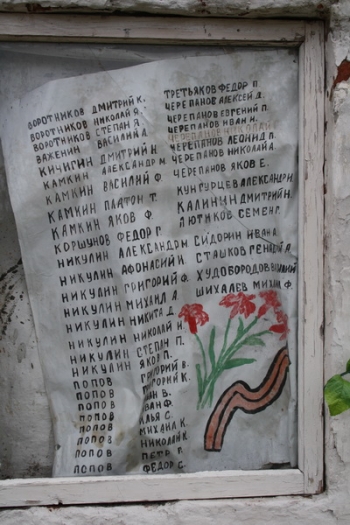 ВОРОТНИКОВ ДМИТРИЙ К.
ВОРОТНИКОВ НИКОЛАЙ Я.
ВОРОТНИКОВ СТЕПАН Я.
ВАЖЕНИН ВАСИЛИЙ А.
КИЧИГИН ДМИТРИЙ Н.
КАМКИН АЛЕКСАНДР М.
КАМКИН ВАСИЛИЙ Ф.
КАМКИН ПЛАТОН Т.
КАМКИН ЯКОВ Ф.
КОРШУНОВ ФЕДОР Г.
НИКУЛИН АЛЕКСАНДР М
НИКУЛИН АФОНАСИЙ
НИКУЛИН ГРИГОРИЙ Ф.
НИКУЛИН МИХАИЛ А.
НИКУЛИН НИКИТА Д.
НИКУЛИН НИКОЛАЙ И.
НИКУЛИН СТЕПАН П.
НИКУЛИН ЯКОВ П.
ПОПОВ ГРИГОРИЙ
ПОПОВ К.
ПОПОВ В.
ПОПОВ Ф.
ПОПОВ С.
ПОПОВ МИХАИЛ К.
ПОПОВ НИКОЛАЙ К
ПОПОВ ПЕТР Г.
ПОПОВ ФЕДОР С.
ТРЕТЬЯКОВ ФЕДОР П
ЧЕРЕПАНОВ АЛЕКСЕЙ Д.
ЧЕРЕПАНОВ ЕВГЕНИЙ П.
ЧЕРЕПАНОВ ИВАН И.
ЧЕРЕПАНОВ НИКОЛАЙ
ЧЕРЕПАНОВ ЛЕОНИД П.
ЧЕРЕПАНОВ НИКОЛАЙ А.
ЧЕРЕПАНОВ ЯКОВ Е.
КУНГУРЦЕВ АЛЕКСАНДР И.
КАЛИНИН ДМИТРИЙ Н.
ЛЮТИКОВ СЕМЕН Г.
СИДОРИН ИВАН А.
СТАШКОВ ГЕНАДИЙ А.
ХУДОБОРОДОВ
ШИХАЛЕВ МИХАИЛ Ф.